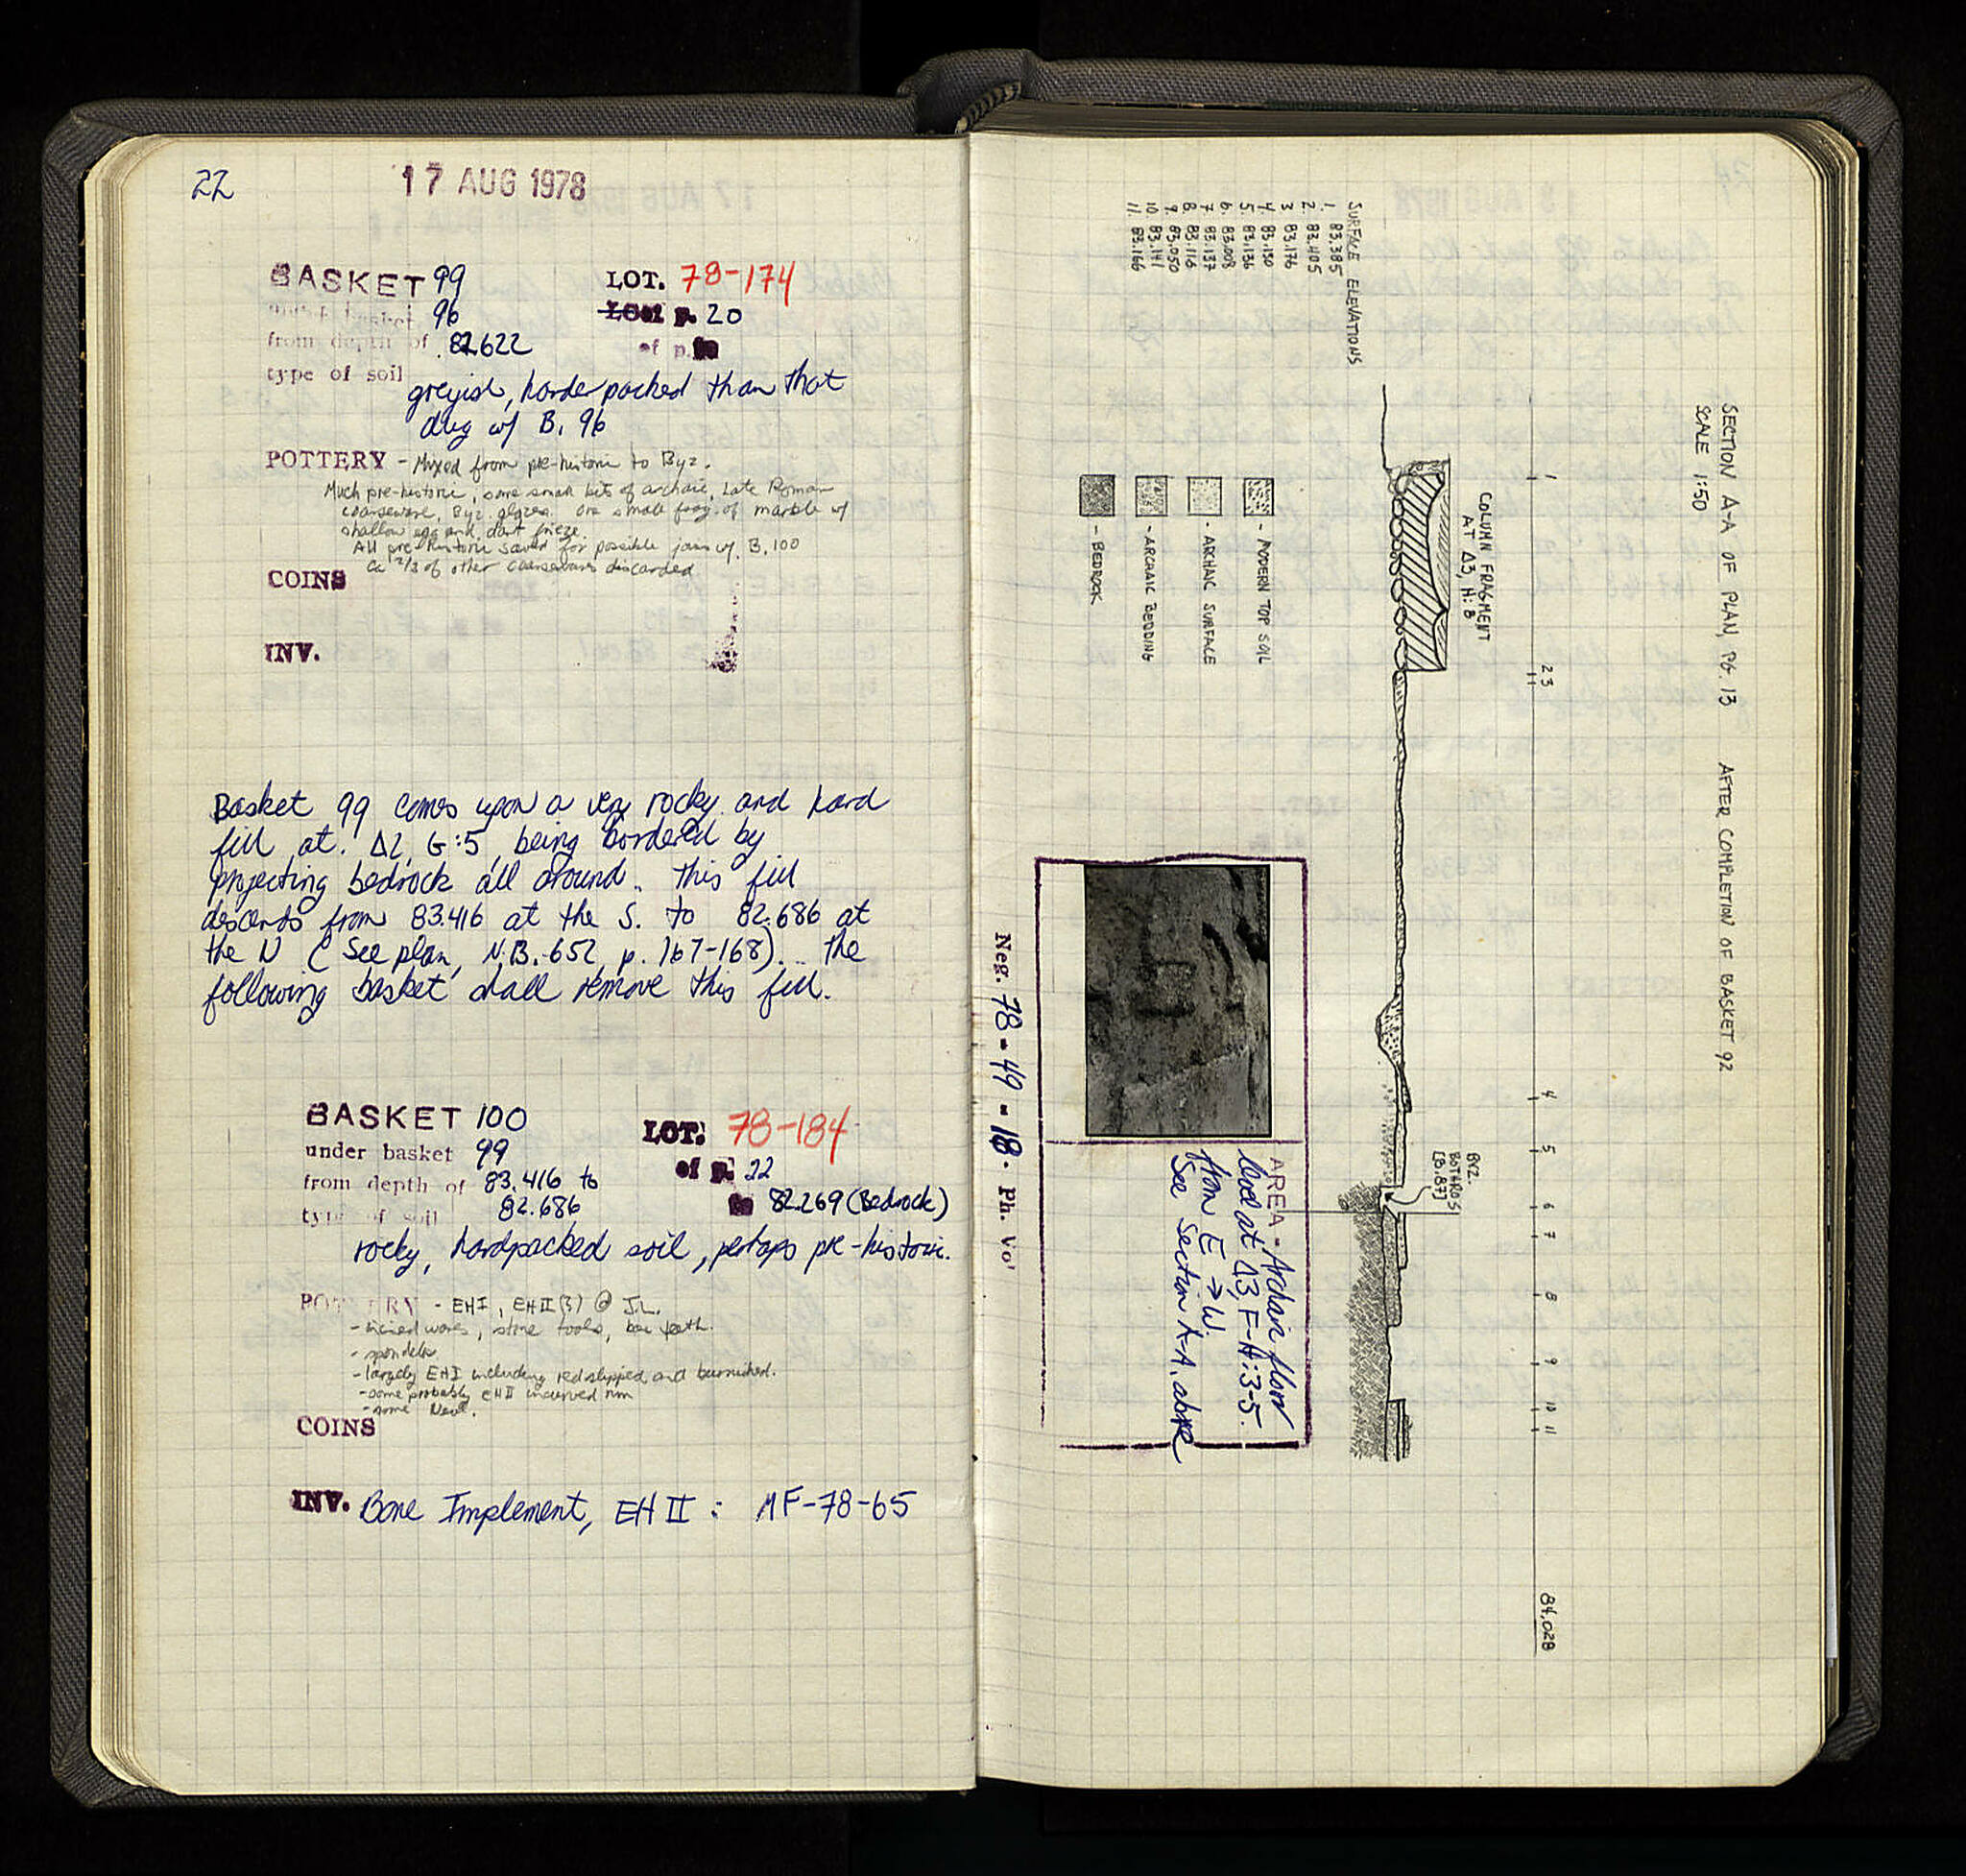 22
17 AUG 1978
BASKET 99
under basket 96
from depth of 82.622
type of soil
greyish, harder packed than that
dug w/ B. 96
LOT. 78-174
p. 20
of p.
POTTERY - Mixed from pre-historic to Byz.
Much pre-historic, some small bits of archaic, Late Roman
coarseware, Byz. glazes. One small frag. of marble w/
shallow egg and dart frieze.
All pre-historic saved for possible joins w/ B. 100
Ca 2/3 of other coarsewares discarded
COINS
INV.
Basket 99 comes upon a very rocky and hard
fill at Δ2, G:5, being bordered by
projecting bedrock all around. This fill
descends from 83.416 at the S. to 82.686 at
the N (See plan, N.B. 652, p. 167-168). The
following basket shall remove this fill.
BASKET 100
under basket 99
from depth of 83.416 to
82.686
type of soil
rocky, hardpacked soil, perhaps pre-historic.
LOT. 78-184
of p. 22
to 82.269 (Bedrock)
POTTERY - EHI, EHII(?) @ J.L.
- incised wares, stone tools, boar teeth.
-
- largely EHI including red slipped and burnished.
- some probably EHII incurved rim
- some Neol.
COINS
INV. Bone Implement, EH II : MF-78-65
SECTION A-A OF PLAN, PG. 13 AFTER COMPLETION OF BASKET 92
SCALE 1:50
1 2 3 4 5 6 7 8 9 10 11
84.028
COLUMN FRAGMENT
AT Δ3, H:8
BYZ.
BOTHROS
[B.87]
SURFACE ELEVATIONS
1. 83.385
2. 83.405
3 83.176
4. 83.150
5. 83.136
6. 83.008
7. 83.137
8. 83.116
9. 83.050
10. 83.141
11. 83.166
- MODERN TOP SOIL
- ARCHAIC SURFACE
- ARCHAIC BEDDING
- BEDROCK
AREA - Archaic floor
level at Δ3, F-H:3-5.
from E → W.
See Section A-A, above
Neg. 78-49-18. Ph. Vol